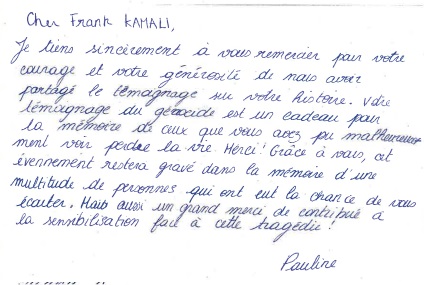 Cher Frank KAMALI,
Je tiens sincèrement à vous remercier pour votre
courage et votre générosité de nous avoir
partagé le témoignage sur votre histoire. Votre
témoignage du génocide est un cadeau pour
la mémoire de ceux que vous avez pu malheureuse
ment voir perdre la vie. Merci! Grâce à vous, cet
évennement restera gravé dans la mémoire d'une
multitude de personnes qui ont eut la chance de vous
écouter. Mais aussi un grand merci de contribué à
la sensibilisation face à cette tragédie!
Pauline